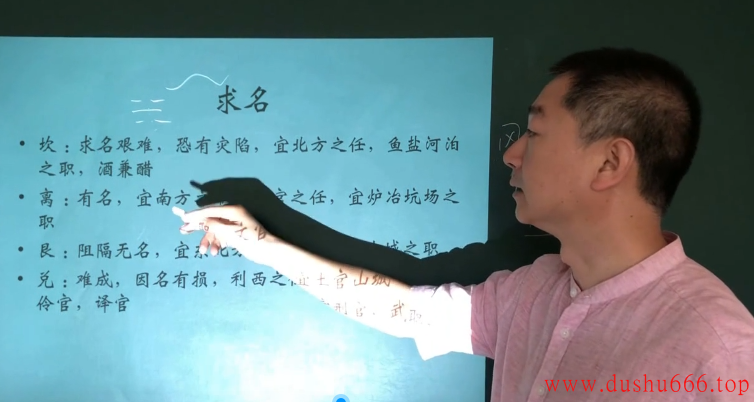 求名
• 坎：求名艰难，恐有灾陷，宜北方之任，鱼盐河泊
之职，酒兼醋
• 离：有名，宜南方 之任，宜炉冶坑场之
职
• 艮：阻隔无名，宜东北 城之职
• 兑：难成，因名有损，利西之 武职
伶官，译官
www.dushu666.top